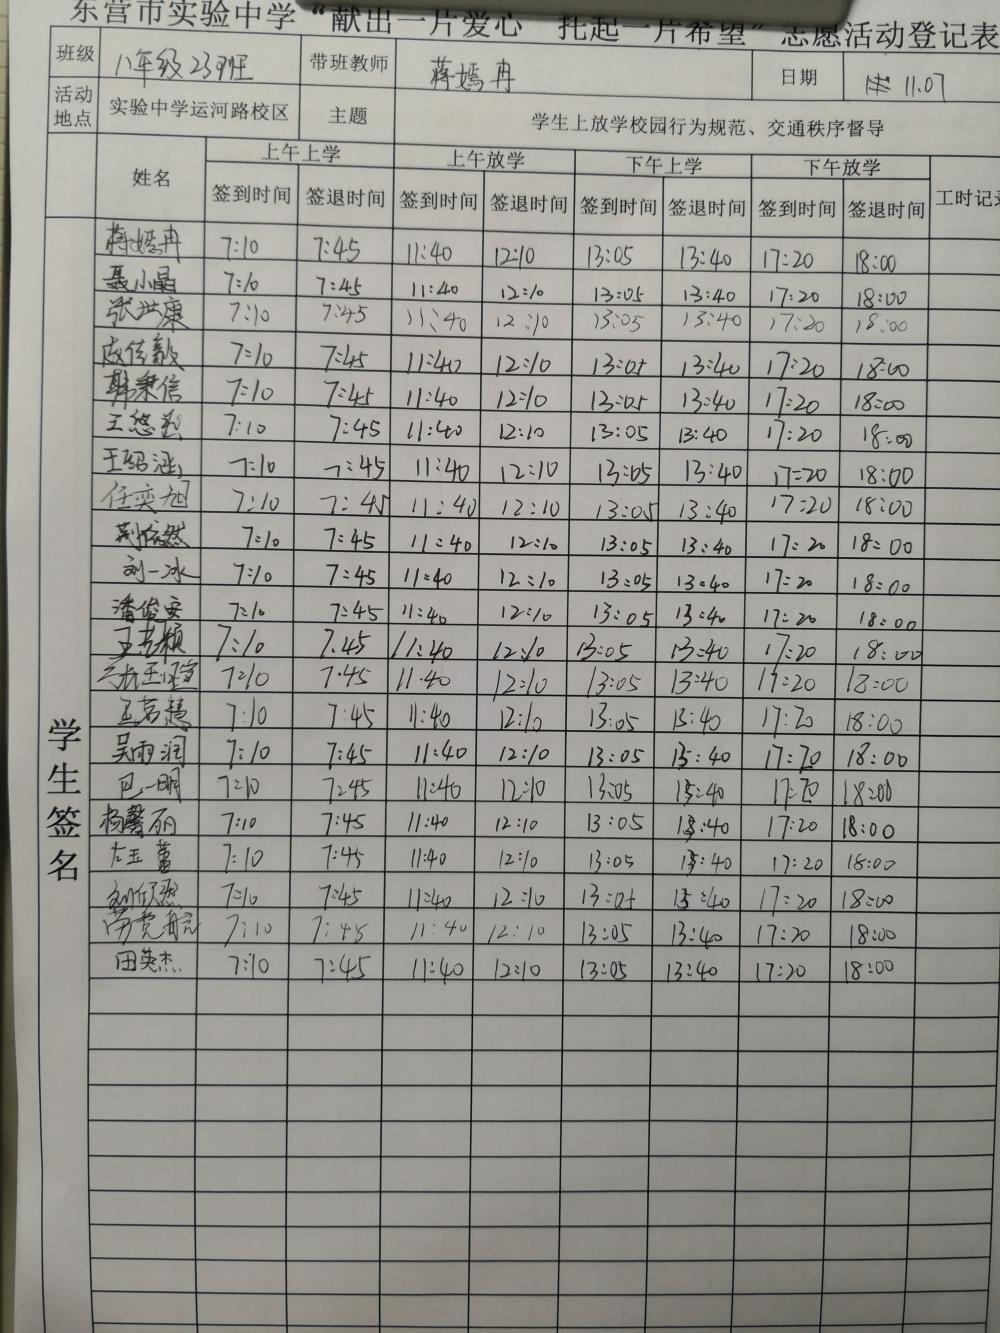 东营市实验中学“献出一片爱心 托起一片希望”志愿活动登记表
班级 八年级23班 带班教师 蒋嫣冉 日期 11.07
活动地点 实验中学运河路校区 主题 学生上放学校园行为规范、交通秩序督导
姓名 上午上学 上午放学 下午上学 下午放学 工时记录
签到时间 签退时间 签到时间 签退时间 签到时间 签退时间 签到时间 签退时间
学生签名
蒋嫣冉 7:10 7:45 11:40 12:10 13:05 13:40 17:20 18:00
聂小晶 7:10 7:45 11:40 12:10 13:05 13:40 17:20 18:00
张洪康 7:10 7:45 11:40 12:10 13:05 13:40 17:20 18:00
成佳毅 7:10 7:45 11:40 12:10 13:05 13:40 17:20 18:00
韩秉信 7:10 7:45 11:40 12:10 13:05 13:40 17:20 18:00
王悠 7:10 7:45 11:40 12:10 13:05 13:40 17:20 18:00
王绍涵 7:10 7:45 11:40 12:10 13:05 13:40 17:20 18:00
任奕旭 7:10 7:45 11:40 12:10 13:05 13:40 17:20 18:00
荆依然 7:10 7:45 11:40 12:10 13:05 13:40 17:20 18:00
刘一冰 7:10 7:45 11:40 12:10 13:05 13:40 17:20 18:00
潘俊安 7:10 7:45 11:40 12:10 13:05 13:40 17:20 18:00
7:10 7:45 11:40 12:10 13:05 13:40 17:20 18:00
7:10 7:45 11:40 12:10 13:05 13:40 17:20 18:00
王若慧 7:10 7:45 11:40 12:10 13:05 13:40 17:20 18:00
吴雨润 7:10 7:45 11:40 12:10 13:05 13:40 17:20 18:00
巴一明 7:10 7:45 11:40 12:10 13:05 13:40 17:20 18:00
杨馨丽 7:10 7:45 11:40 12:10 13:05 13:40 17:20 18:00
左玉萱 7:10 7:45 11:40 12:10 13:05 13:40 17:20 18:00
刘欣然 7:10 7:45 11:40 12:10 13:05 13:40 17:20 18:00
7:10 7:45 11:40 12:10 13:05 13:40 17:20 18:00
田英杰 7:10 7:45 11:40 12:10 13:05 13:40 17:20 18:00